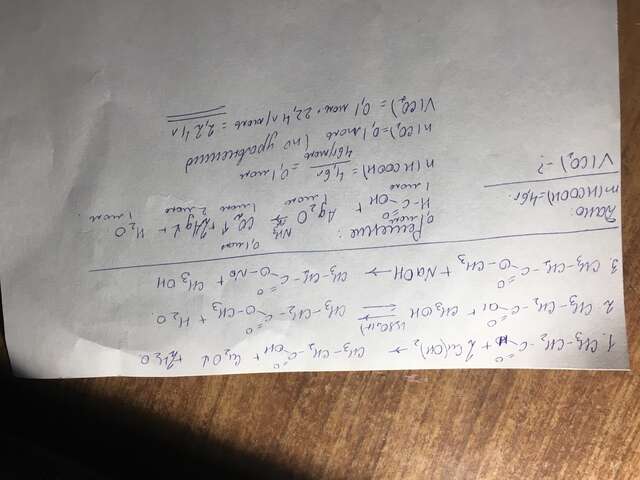 1. CH3-CH2-C=O H + 2Cu(OH)2 → CH3-CH2-C=O OH + Cu2O↓ + 2H2O.
2. CH3-CH2-C=O OH + CH3OH ⇌ H2SO4(к) CH3-CH2-C=O O-CH3 + H2O.
3. CH3-CH2-C=O O-CH3 + NaOH → CH3-CH2-C=O O-Na + CH3OH
Дано:
m(HCOOH)=4,6г.
V(CO2)-?
Решение:
0,1моль 0,1моль
H-C=O OH + Ag2O NH3→ CO2↑ + 2Ag↓ + H2O
1 моль 1 моль 1 моль 2 моль 1 моль.
n(HCOOH) = 4,6г / 46г/моль = 0,1 моль
n(CO2)=0,1 моль (по уравнению)
V(CO2) = 0,1 моль · 22,4 л/моль = 2,24л